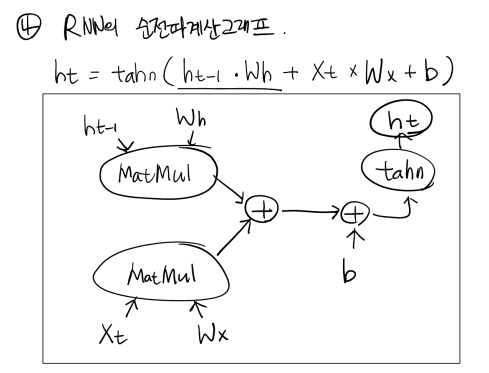 ④ RNN의 순전파계산그래프.
ht = tahn(ht-1 · Wh + Xt × Wx + b)
ht-1 Wh
ht
MatMul
tahn
+ +
MatMul
b
Xt Wx